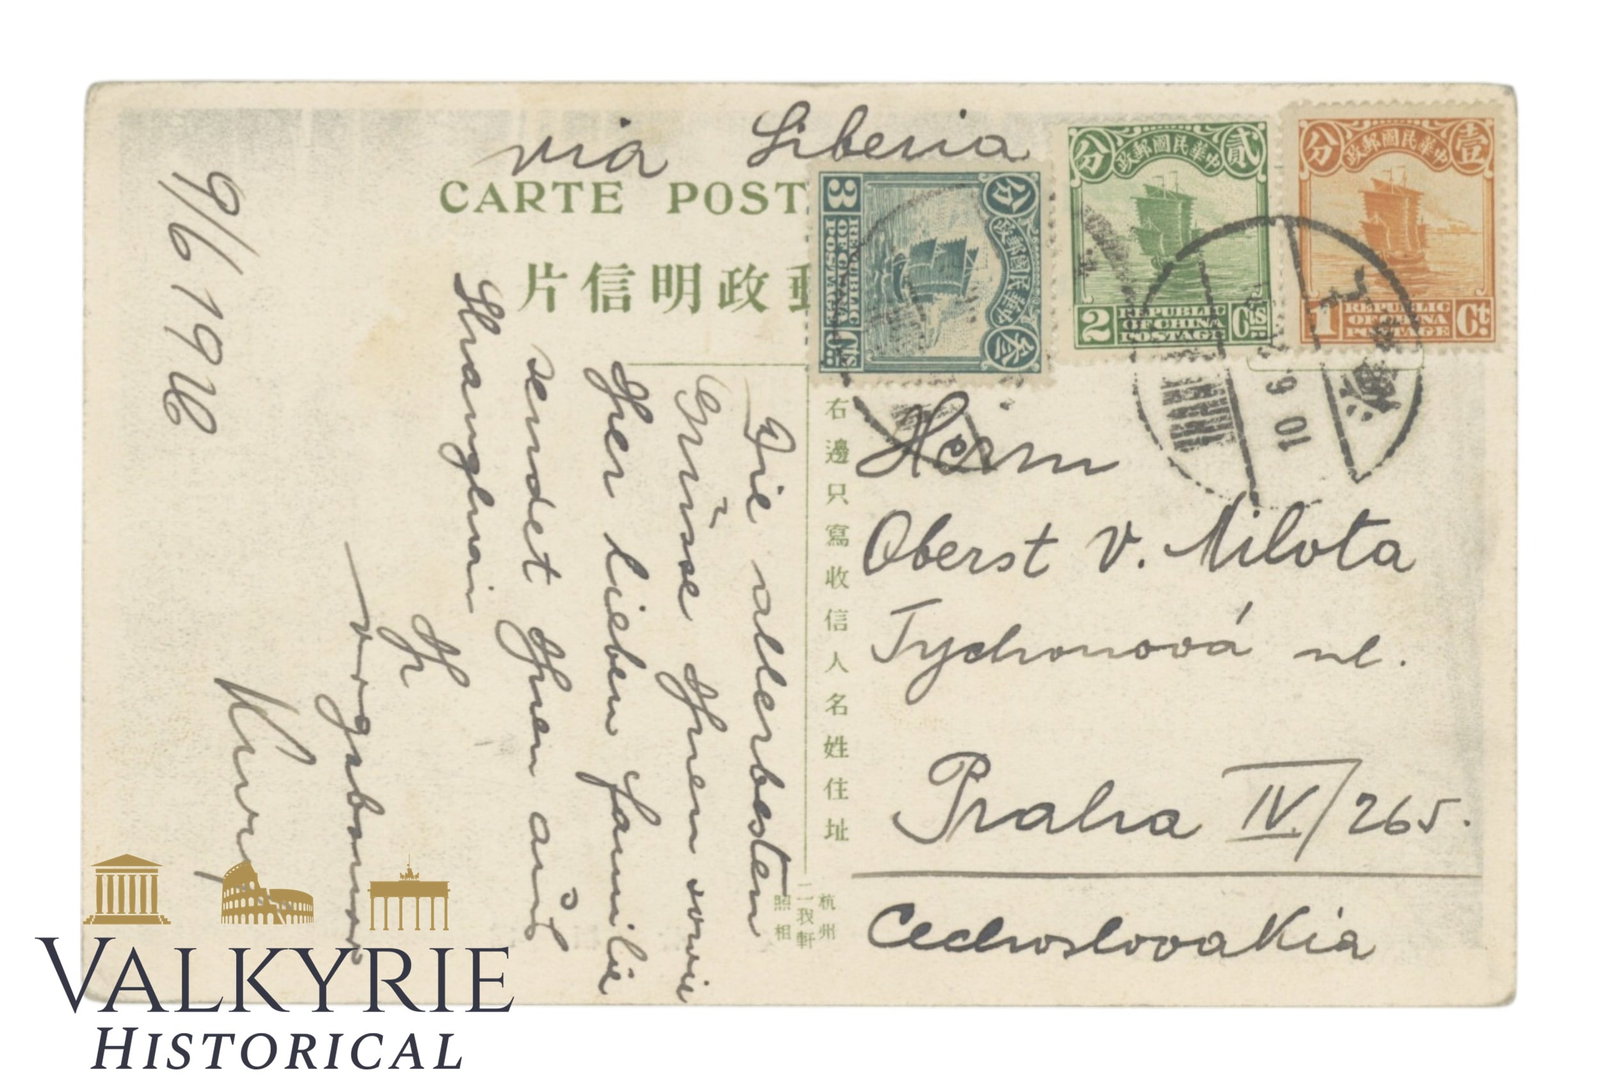 via Siberia
CARTE POST
郵政明信片
中華民國郵政
分 叁
3 Cts
REPUBLIC
OF CHINA
POSTAGE
中華民國郵政
分 貳
2 Cts
REPUBLIC
OF CHINA
POSTAGE
中華民國郵政
分 壹
1 Ct.
REPUBLIC
OF CHINA
POSTAGE
10 6
海
右邊只寫收信人名姓住址
Herrn
Oberst v. Milota
Tychonová ul.
Praha IV/265.
Cechoslovakia
Die allerbesten
Grüsse Ihnen sowie
Iher lieben Familie
sendet Ihnen aus
Shanghai
Ihr
9/6 192
杭州
二我軒
照相
VALKYRIE
HISTORICAL